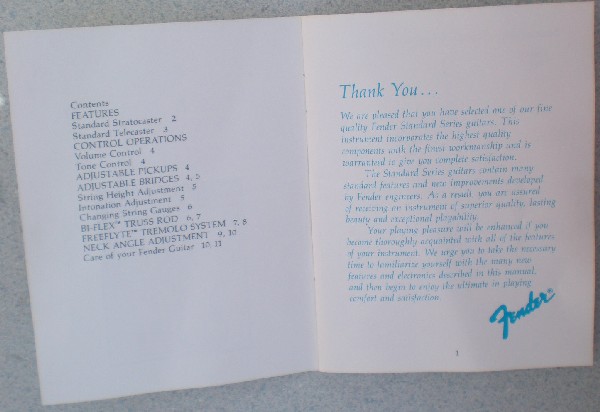 Contents
FEATURES
Standard Stratocaster 2
Standard Telecaster 3
CONTROL OPERATIONS
Volume Control 4
Tone Control 4
ADJUSTABLE PICKUPS 4
ADJUSTABLE BRIDGES 4, 5
String Height Adjustment 5
Intonation Adjustment 5
Changing String Gauges 6
BI-FLEX™ TRUSS ROD 6, 7
FREEFLYTE™ TREMOLO SYSTEM 7, 8
NECK ANGLE ADJUSTMENT 9, 10
Care of your Fender Guitar 10, 11
Thank You...
We are pleased that you have selected one of our fine
quality Fender Standard Series guitars. This
instrument incorporates the highest quality
components with the finest workmanship and is
warranted to give you complete satisfaction.
The Standard Series guitars contain many
standard features and new improvements developed
by Fender engineers. As a result, you are assured
of receiving an instrument of superior quality, lasting
beauty and exceptional playability.
Your playing pleasure will be enhanced if you
become thoroughly acquainted with all of the features
of your instrument. We urge you to take the necessary
time to familiarize yourself with the many new
features and electronics described in this manual,
and then begin to enjoy the ultimate in playing
comfort and satisfaction.
Fender®
1